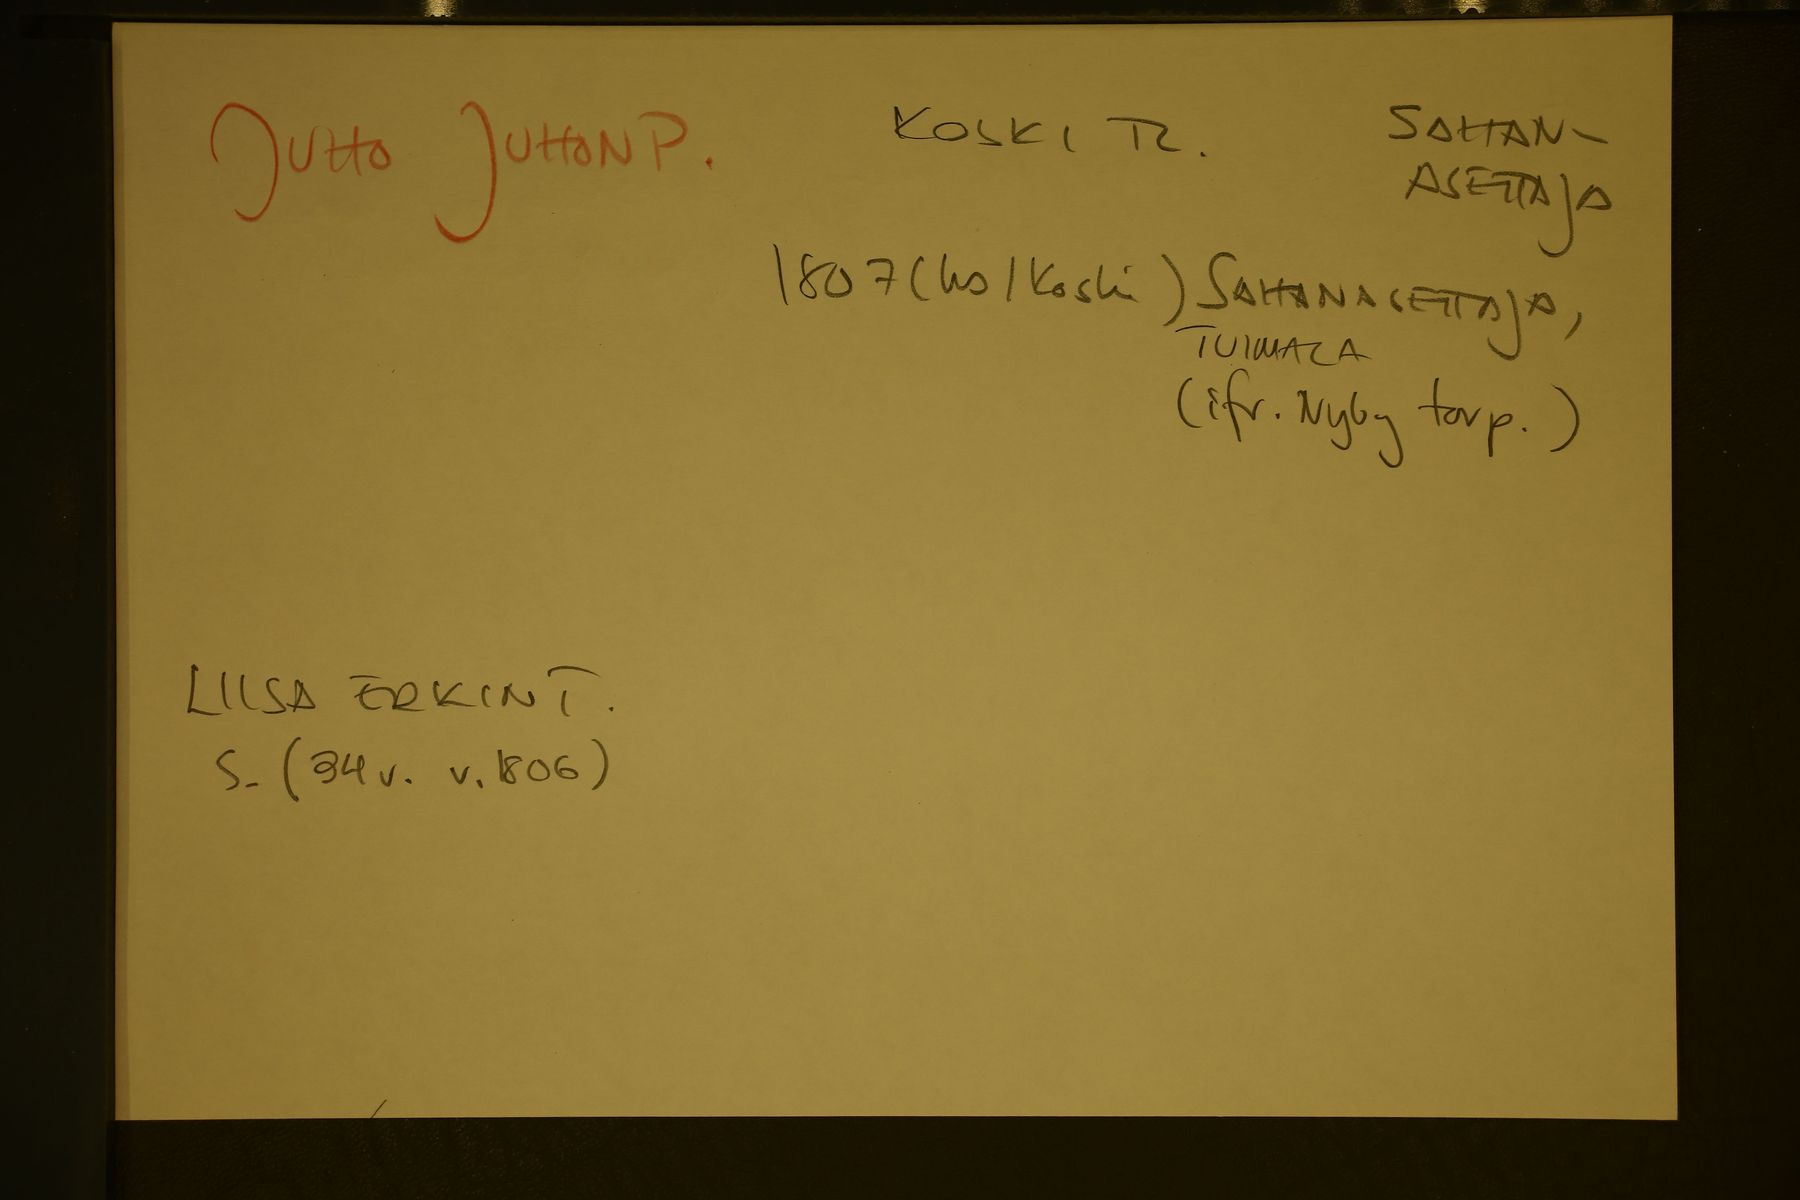 JUHO JUHON P. KOSKI TL. SAHAN-
ASETTAJA
1807 (ho / Koski) SAHANASETTAJA,
TUIMALA
(ifr. Nyby torp.)
LIISA ERKIN T.
S. (34 v. v. 1806)